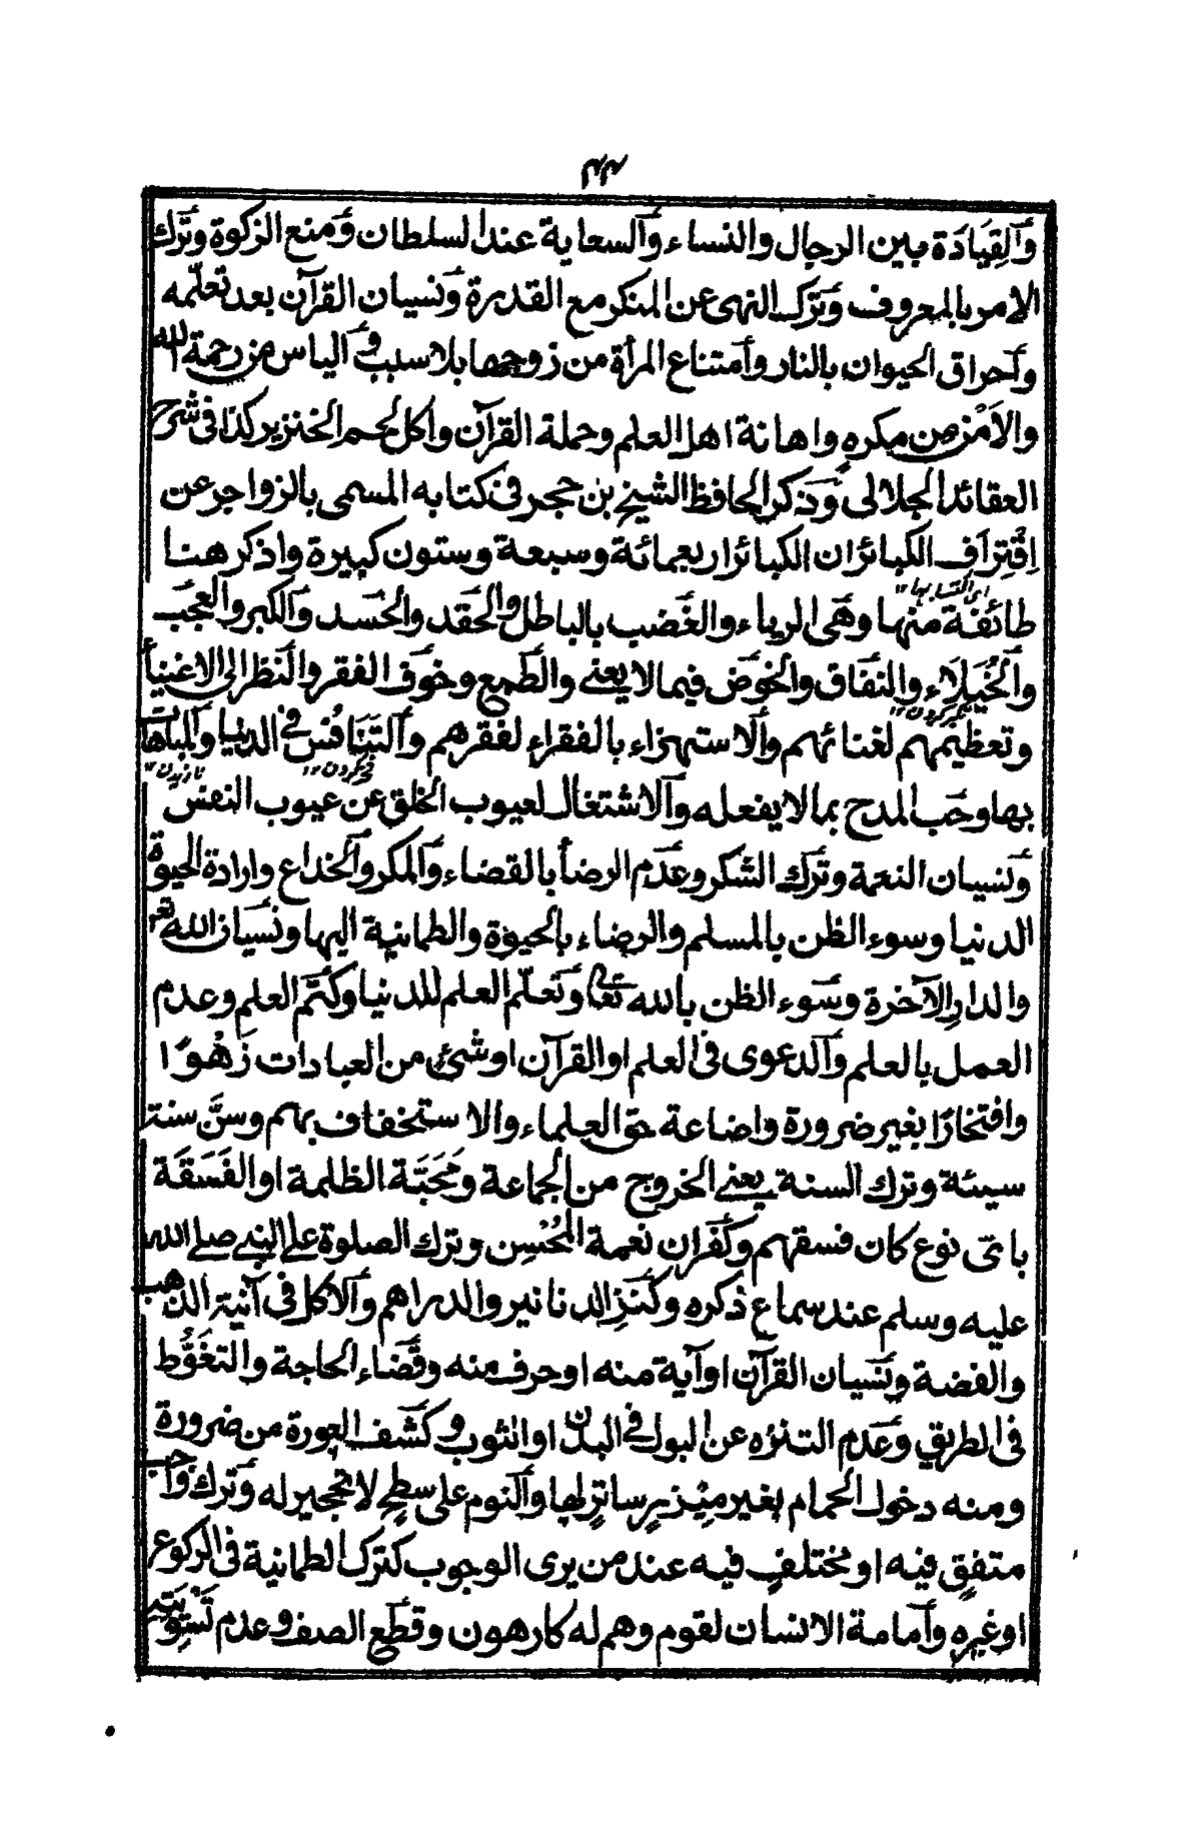 ۴۴
وَالقِيَادَة بين الرجال والنساء والسعاية عند السلطان ومنع الزكوة وترك
الامر بالمعروف وترك النهى عن المنكر مع القدرة ونسيان القرآن بعد تعلّمه
واحراق الحيوان بالنار وامتناع المرأة من زوجها بلا سبب والياس من رحمة الله
والاَمْن من مكره واهانة اهل العلم وحملة القرآن واكل لحم الخنزير كذا فى شرح
العقائد الجلالى وذكر الحافظ الشيخ بن حجر فى كتابه المسمى بالزواجر عن
اِقْتِرَاف الكبائر ان الكبائر اربعمائة وسبعة وستون كبيرة واذكر هنا
اى اكتسابها ١٢
طائفة منها وهى الرياء والغضب بالباطل والحقد والحسد والكبر والعجب
والخُيَلَاء والنفاق والخوض فيما لا يعنے والطمع وخوف الفقر والنظر الى الاغنيأ
تكبر كردن ١٢
وتعظيمهم لغنائهم والاستهزاء بالفقراء لفقرهم والتَنَافُس فى الدنيا والمباهات
فخر كردن ١٢ نازيدن ١٢
بها وحب المدح بما لا يفعله والاشتغال لعيوب الخلق عن عيوب النفس
ونسيان النعمة وترك الشكر وعدم الرضأ بالقضاء والمكر والخداع وارادة الحيوة
الدنيا وسوء الظن بالمسلم والرضاء بالحيوة والطمانية اليها ونسيان الله تعم
والدار الآخرة وسوء الظن بالله تعا وتعلّم العلم للدنيا وكتم العلم وعدم
العمل بالعلم والدعوى فى العلم او القرآن او شئ من العبادات زَهْوًا
وافتخارًا بغير ضرورة واضاعة حق العلماء والاستخفاف بهم وسنّ سنة
سيئة وترك السنة يعنے الخروج من الجماعة ومَحَبَّة الظلمة او الفَسَقَة
باىّ نوع كان فسقهم وكفران نعمة المُحْسِن وترك الصلوة على النبے صلے الله
عليه وسلم عند سماع ذكره وكَنْز الدنانير والدراهم والاكل فى آنية الذهب
والفضة ونسيان القرآن او آية منه او حرف منه وقضاء الحاجة والتغَوُّط
فى الطريق وعدم التنزه عن البول فى البدن او الثوب وكشف العورة من ضرورة
ومنه دخول الحمام بغير مِئزرٍ ساترٍ لها والنوم على سطح لا تحجير له وترك واجب
متفقٍ فيه او مختلفٍ فيه عند من يرى الوجوب كترك الطمانية فى الركوع
او غيره وامامة الانسان لقوم وهم له كارهون وقطع الصف وعدم تَسْوِيَتِه